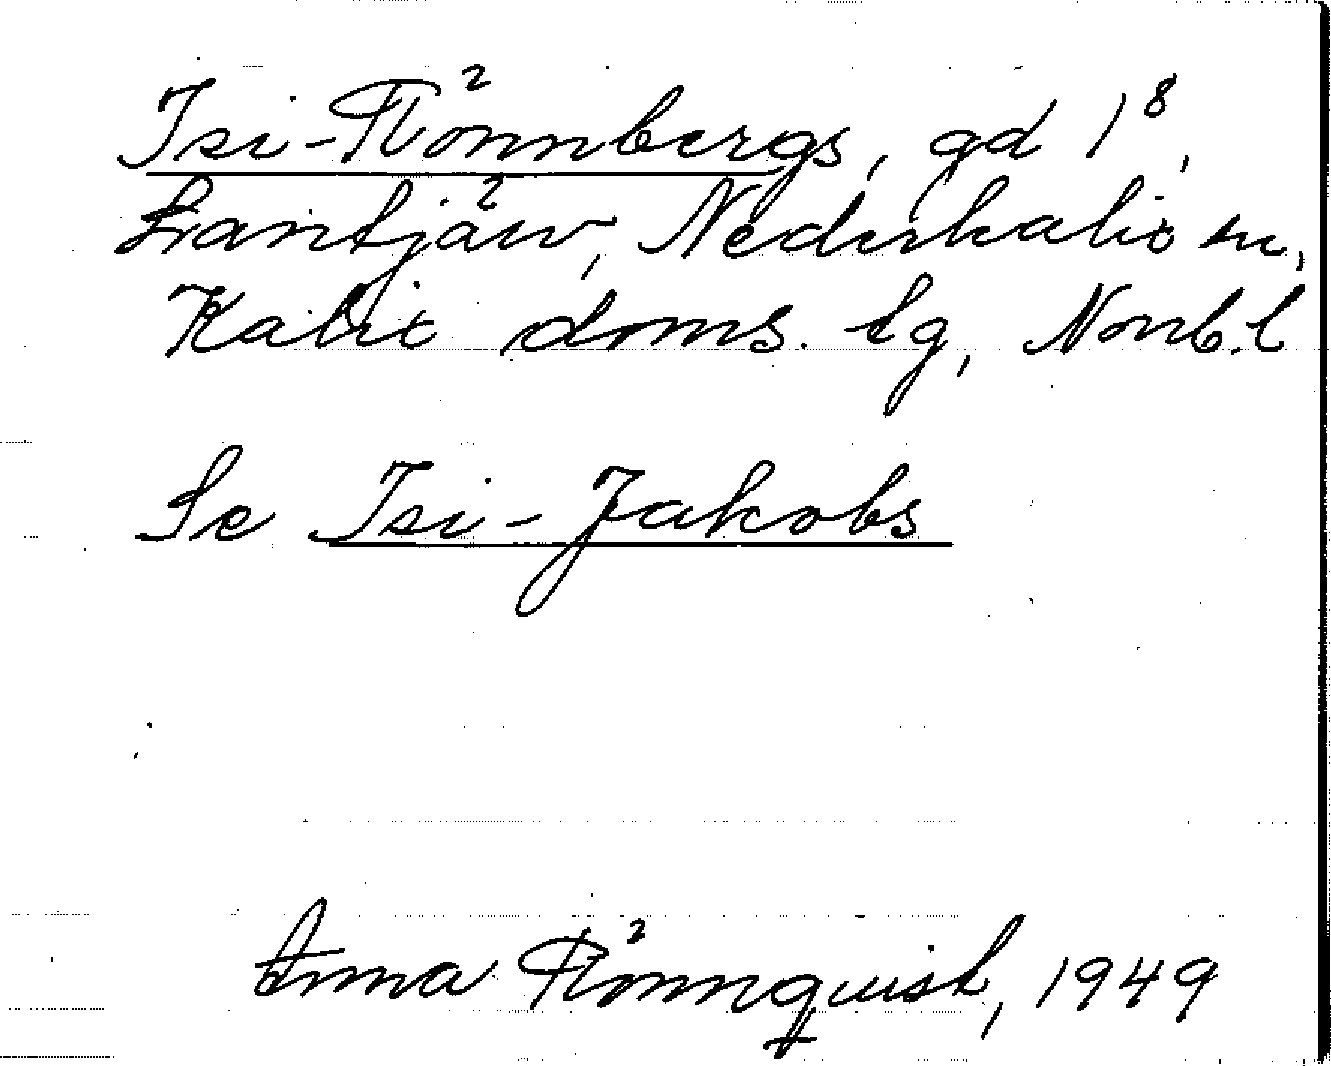 Isi-Rönnbergs, gd 1⁸,
Lantjärv, Nederkalix sn,
Kalix doms. lg, Norrb. l
Se Isi-Jakobs
Anna Rönnquist, 1949